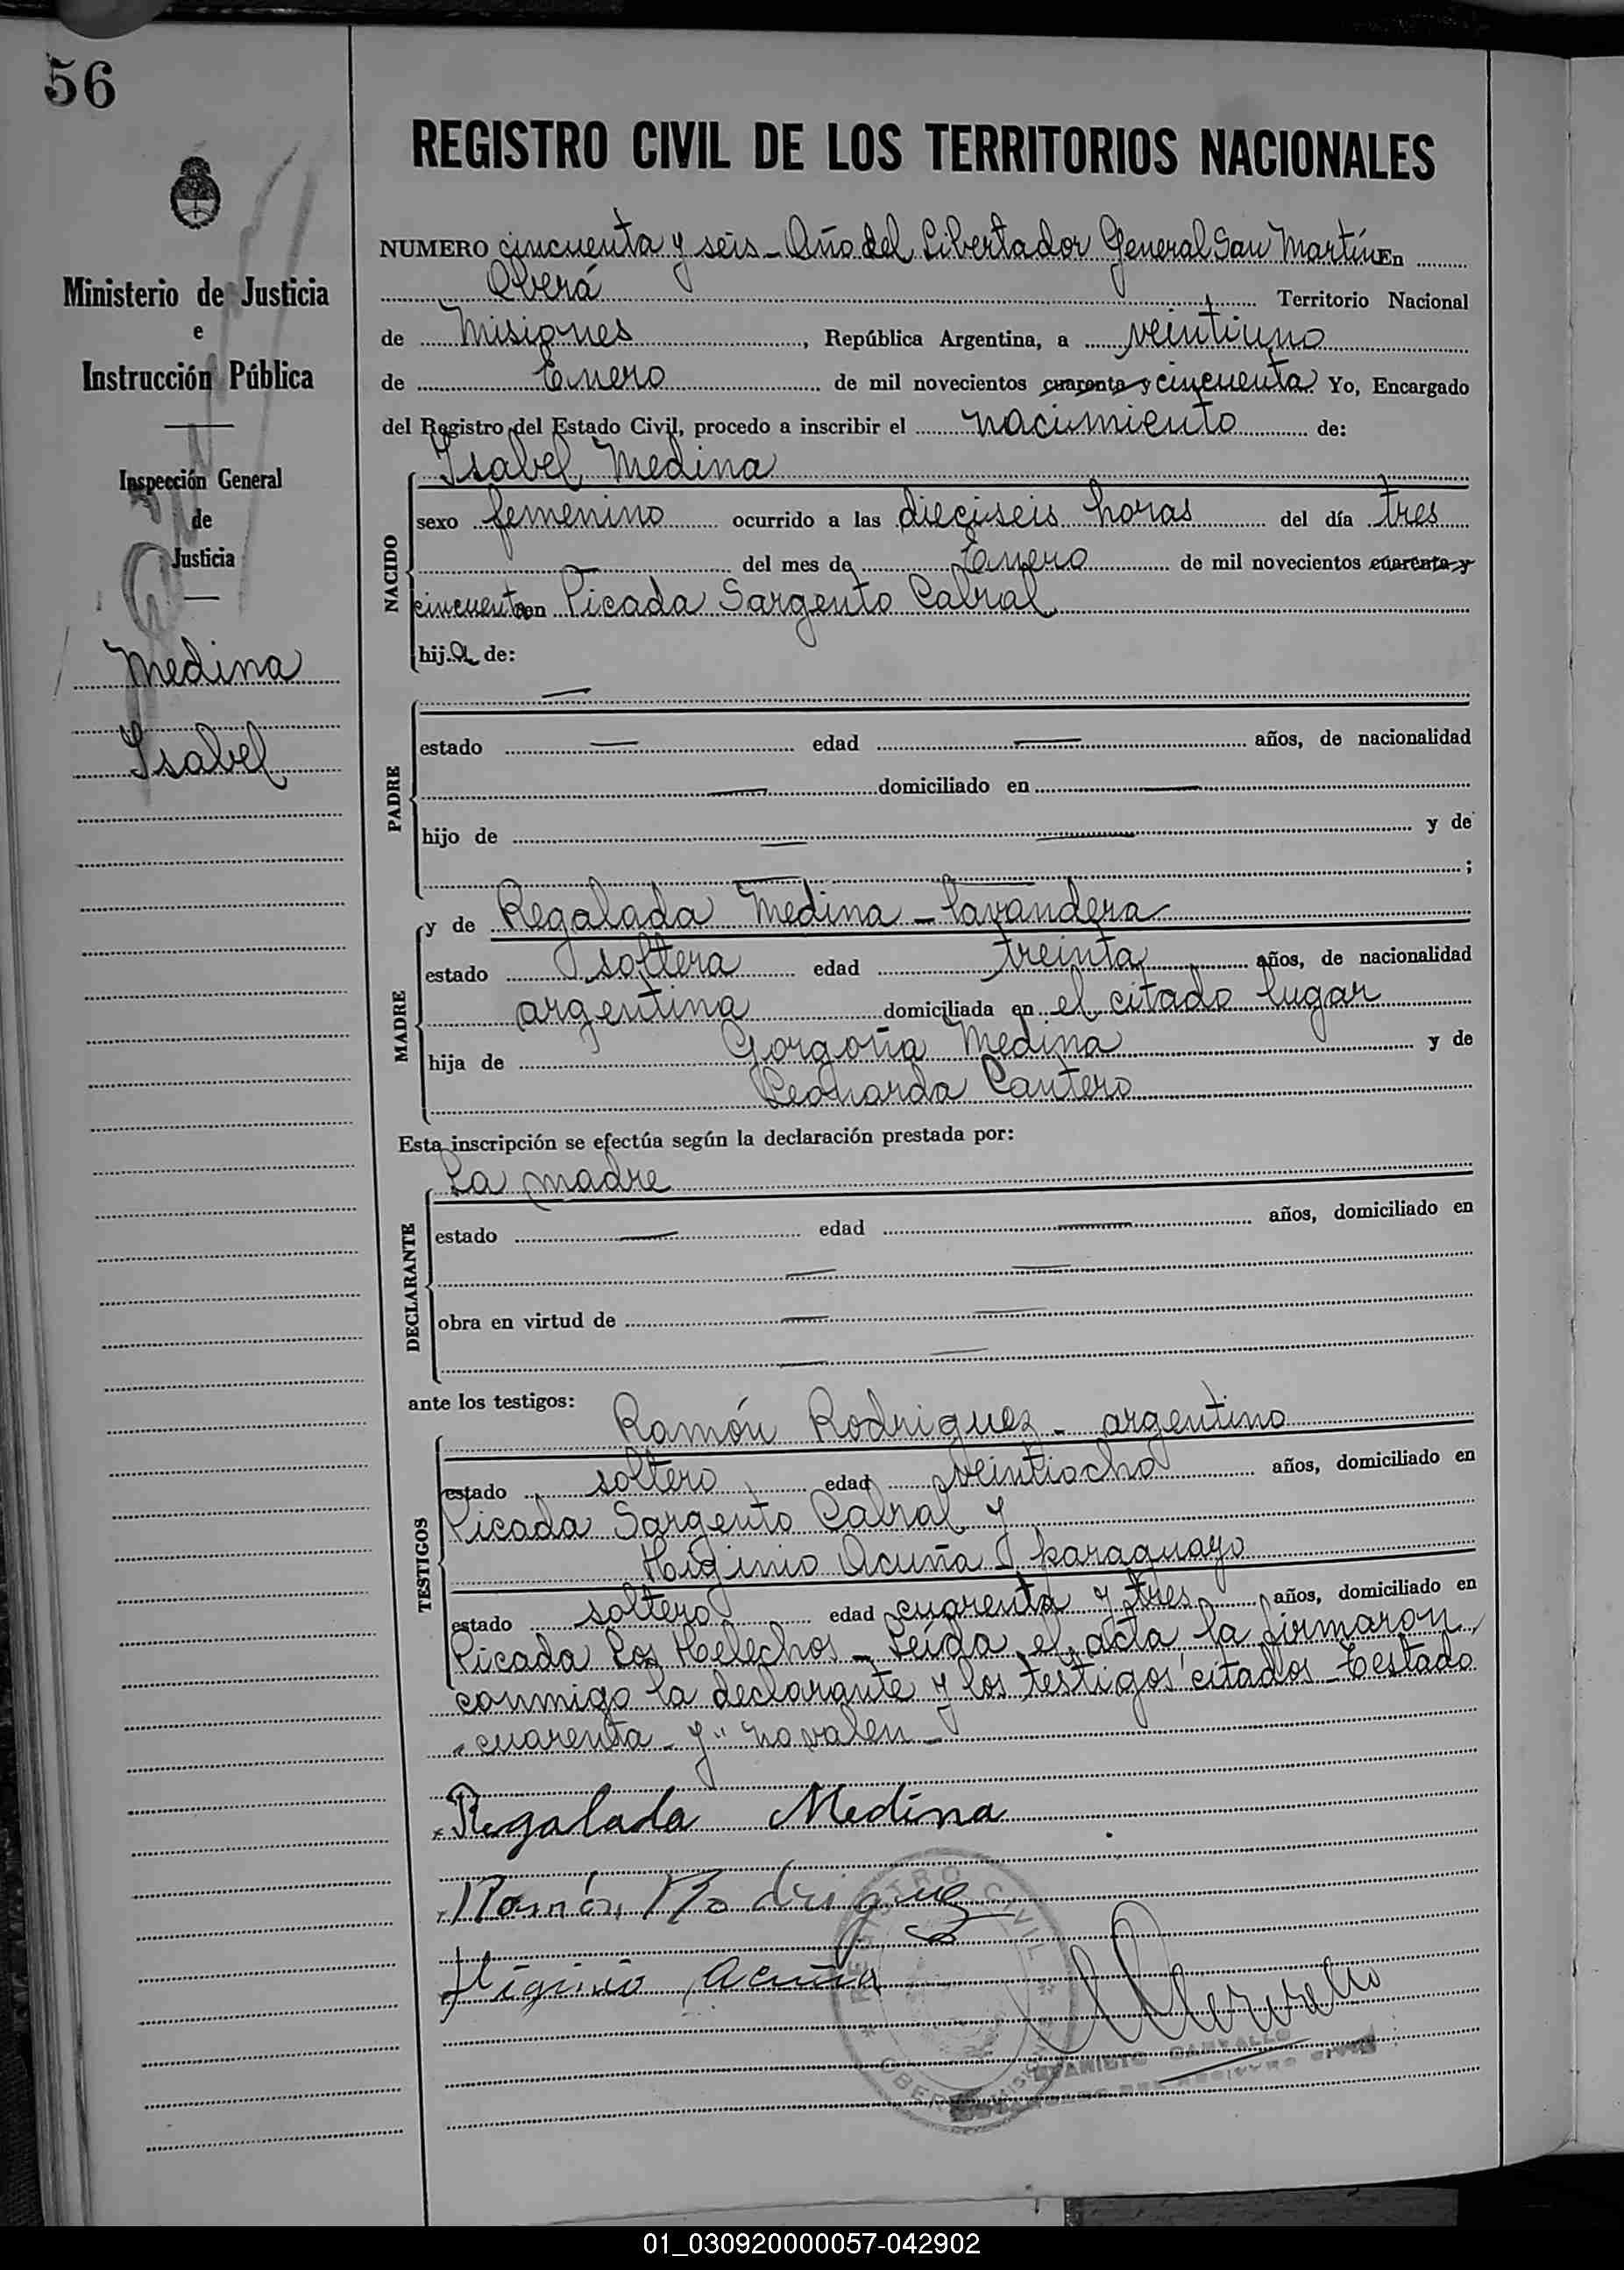 56
REGISTRO CIVIL DE LOS TERRITORIOS NACIONALES
Ministerio de Justicia
e
Instrucción Pública
Inspección General
de
Justicia
Medina
Isabel
NUMERO cincuenta y seis - Año del Libertador General San Martín En
Oberá Territorio Nacional
de Misiones, República Argentina, a veintiuno
de Enero de mil novecientos cuarenta y cincuenta Yo, Encargado
del Registro del Estado Civil, procedo a inscribir el nacimiento de:
NACIDO
Isabel Medina
sexo femenino ocurrido a las dieciseis horas del día tres
del mes de Enero de mil novecientos cuarenta y
cincuenta en Picada Sargento Cabral
hija de:
PADRE
estado — edad — años, de nacionalidad
— domiciliado en —
hijo de — y de
— ;
MADRE
y de Regalada Medina - lavandera
estado soltera edad treinta años, de nacionalidad
argentina domiciliada en el citado lugar
hija de Gorgoña Medina y de
Leonarda Cantero
Esta inscripción se efectúa según la declaración prestada por:
DECLARANTE
La madre
estado — edad — años, domiciliado en
— —
obra en virtud de — —
— —
ante los testigos:
TESTIGOS
Ramón Rodriguez - argentino
estado soltero edad veintiocho años, domiciliado en
Picada Sargento Cabral y
Higinio Acuña - paraguayo
estado soltero edad cuarenta y tres años, domiciliado en
Picada Los Helechos - Leída el acta la firmaron
conmigo la declarante y los testigos citados - Testado
"cuarenta - y" no valen -
Regalada Medina
Ramón Rodriguez
Higinio Acuña
REGISTRO CIVIL
01_030920000057-042902